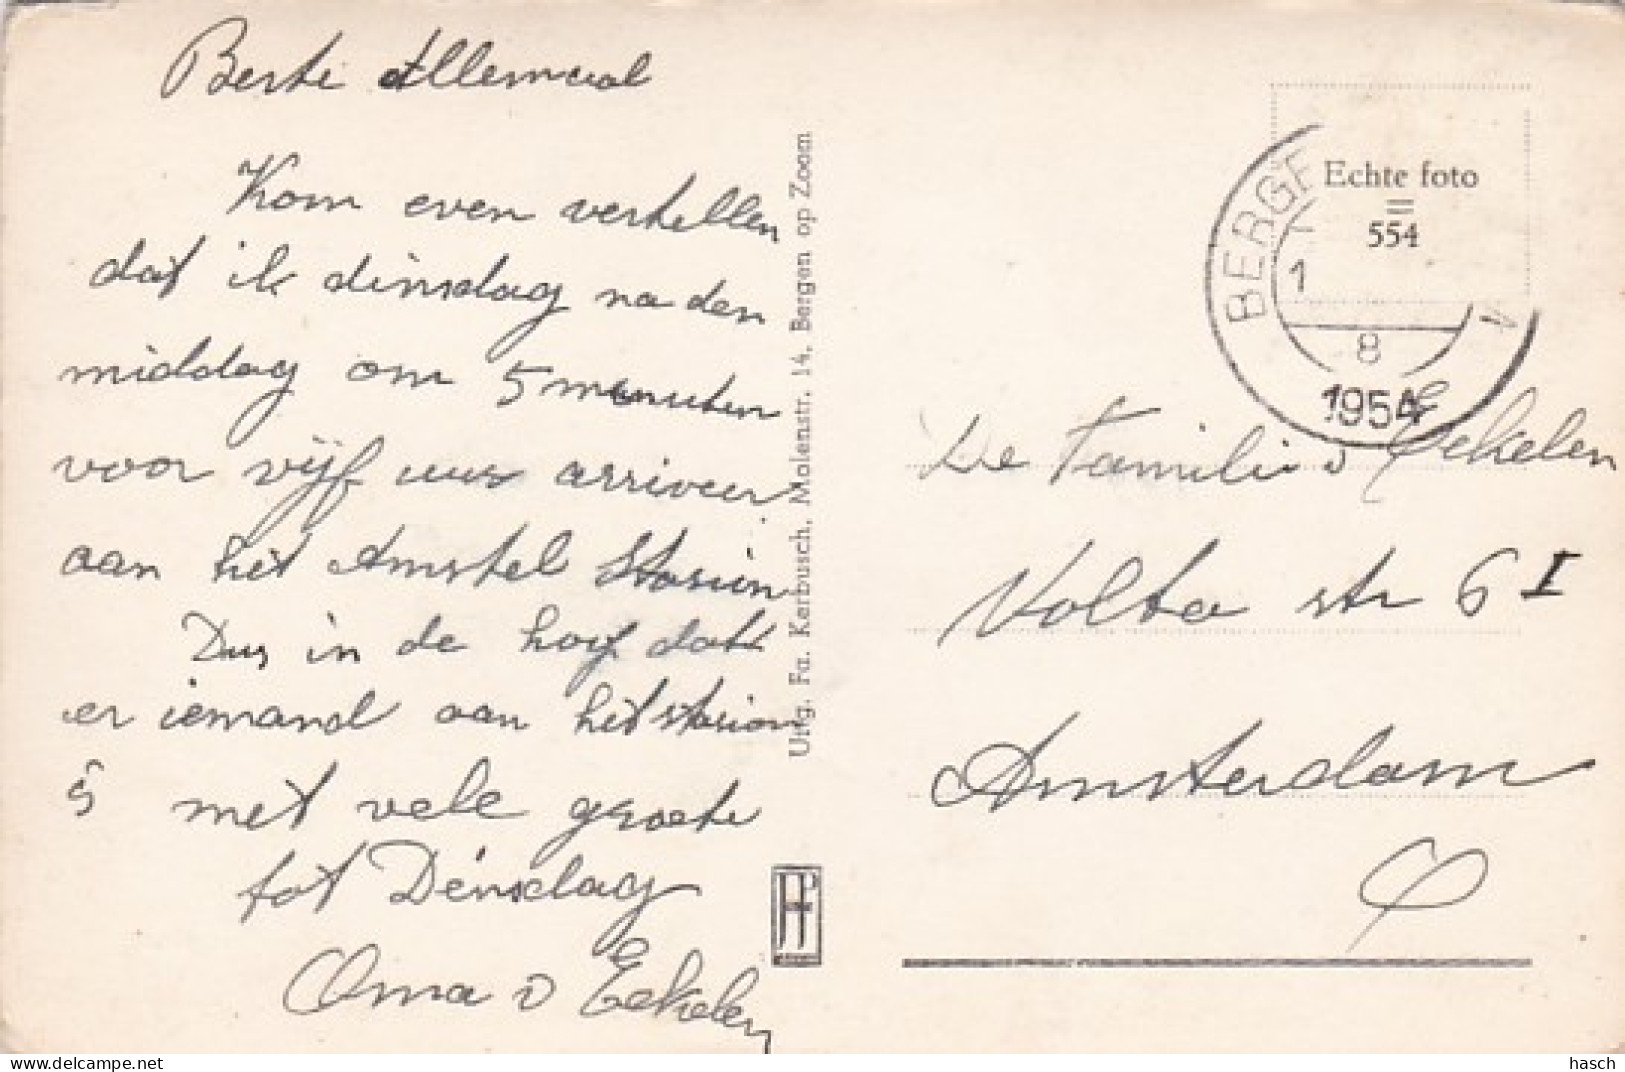 Beste Allemaal
Kom even vertellen
dat ik dinsdag na den
middag om 5 menuten
voor vijf uur arriveer
aan het Amstel Stasion
Dus in de hoof dat
er iemand aan het stasion
met vele groete
tot Dinsdag
Oma v Eekelen
Uitg. Fa. Kerbusch, Molenstr. 14, Bergen op Zoom
Echte foto
554
BERGE
1
8
1954
De Familie v Eekelen
Volta str 6 I
Amsterdam
hasch